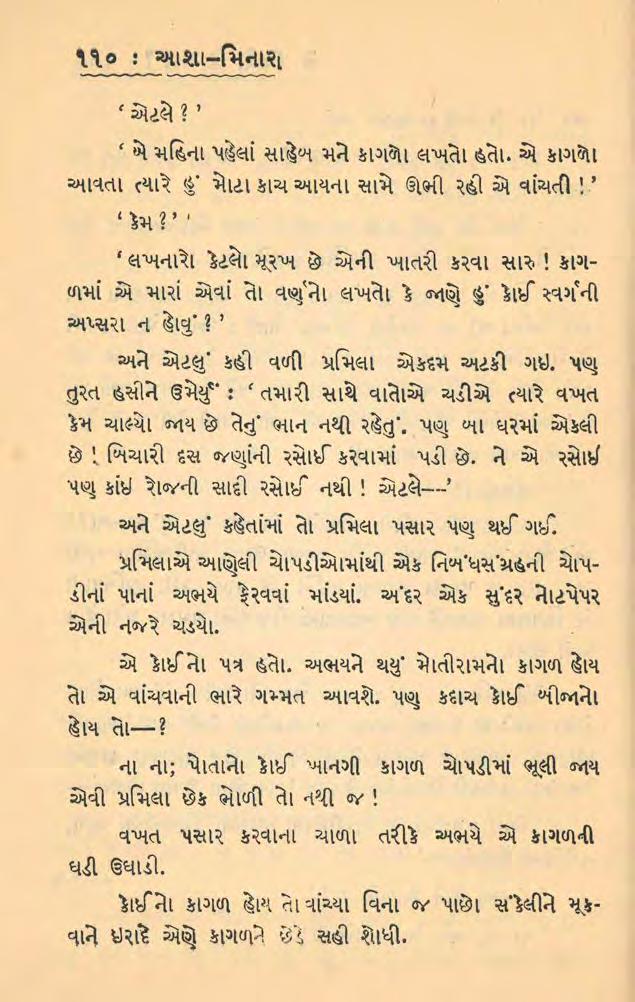 ૧૧૦ : આશા–મિનારા
‘ એટલે ? ’
‘ બે મહિના પહેલાં સાહેબ મને કાગળો લખતો હતો. એ કાગળો
આવતા ત્યારે હું મોટા કાચ આયના સામે ઊભી રહી એ વાંચતી ! ’
‘ કેમ ? ’ '
‘ લખનારો કેટલો મૂરખ છે એની ખાતરી કરવા સારુ ! કાગ-
ળમાં એ મારાં એવાં તો વર્ણનો લખતો કે જાણે હું કોઈ સ્વર્ગની
અપ્સરા ન હોવું ? ’
અને એટલું કહી વળી પ્રમિલા એકદમ અટકી ગઇ. પણ
તુરત હસીને ઉમેર્યું : ‘ તમારી સાથે વાતોએ ચડીએ ત્યારે વખત
કેમ ચાલ્યો જાય છે તેનું ભાન નથી રહેતું. પણ બા ઘરમાં એકલી
છે ! બિચારી દસ જણાંની રસોઈ કરવામાં પડી છે. ને એ રસોઇ
પણ કાંઇ રોજની સાદી રસોઈ નથી ! એટલે––’
અને એટલું કહેતાંમાં તો પ્રમિલા પસાર પણ થઈ ગઈ.
પ્રમિલાએ આણેલી ચોપડીઓમાંથી એક નિબંધસંગ્રહની ચોપ-
ડીનાં પાનાં અભયે ફેરવવાં માંડયાં. અંદર એક સુંદર નોટપેપર
એની નજરે ચડયો.
એ કોઈનો પત્ર હતો. અભયને થયું મોતીરામનો કાગળ હોય
તો એ વાંચવાની ભારે ગમ્મત આવશે. પણ કદાચ કોઈ બીજાનો
હોય તો—?
ના ના; પોતાનો કોઈ ખાનગી કાગળ ચોપડીમાં ભૂલી જાય
એવી પ્રમિલા છેક ભોળી તો નથી જ !
વખત પસાર કરવાના ચાળા તરીકે અભયે એ કાગળની
ઘડી ઉઘાડી.
કોઈનો કાગળ હોય તો વાંચ્યા વિના જ પાછો સંકેલીને મૂક-
વાને ઇરાદે એણે કાગળને છેડે સહી શોધી.